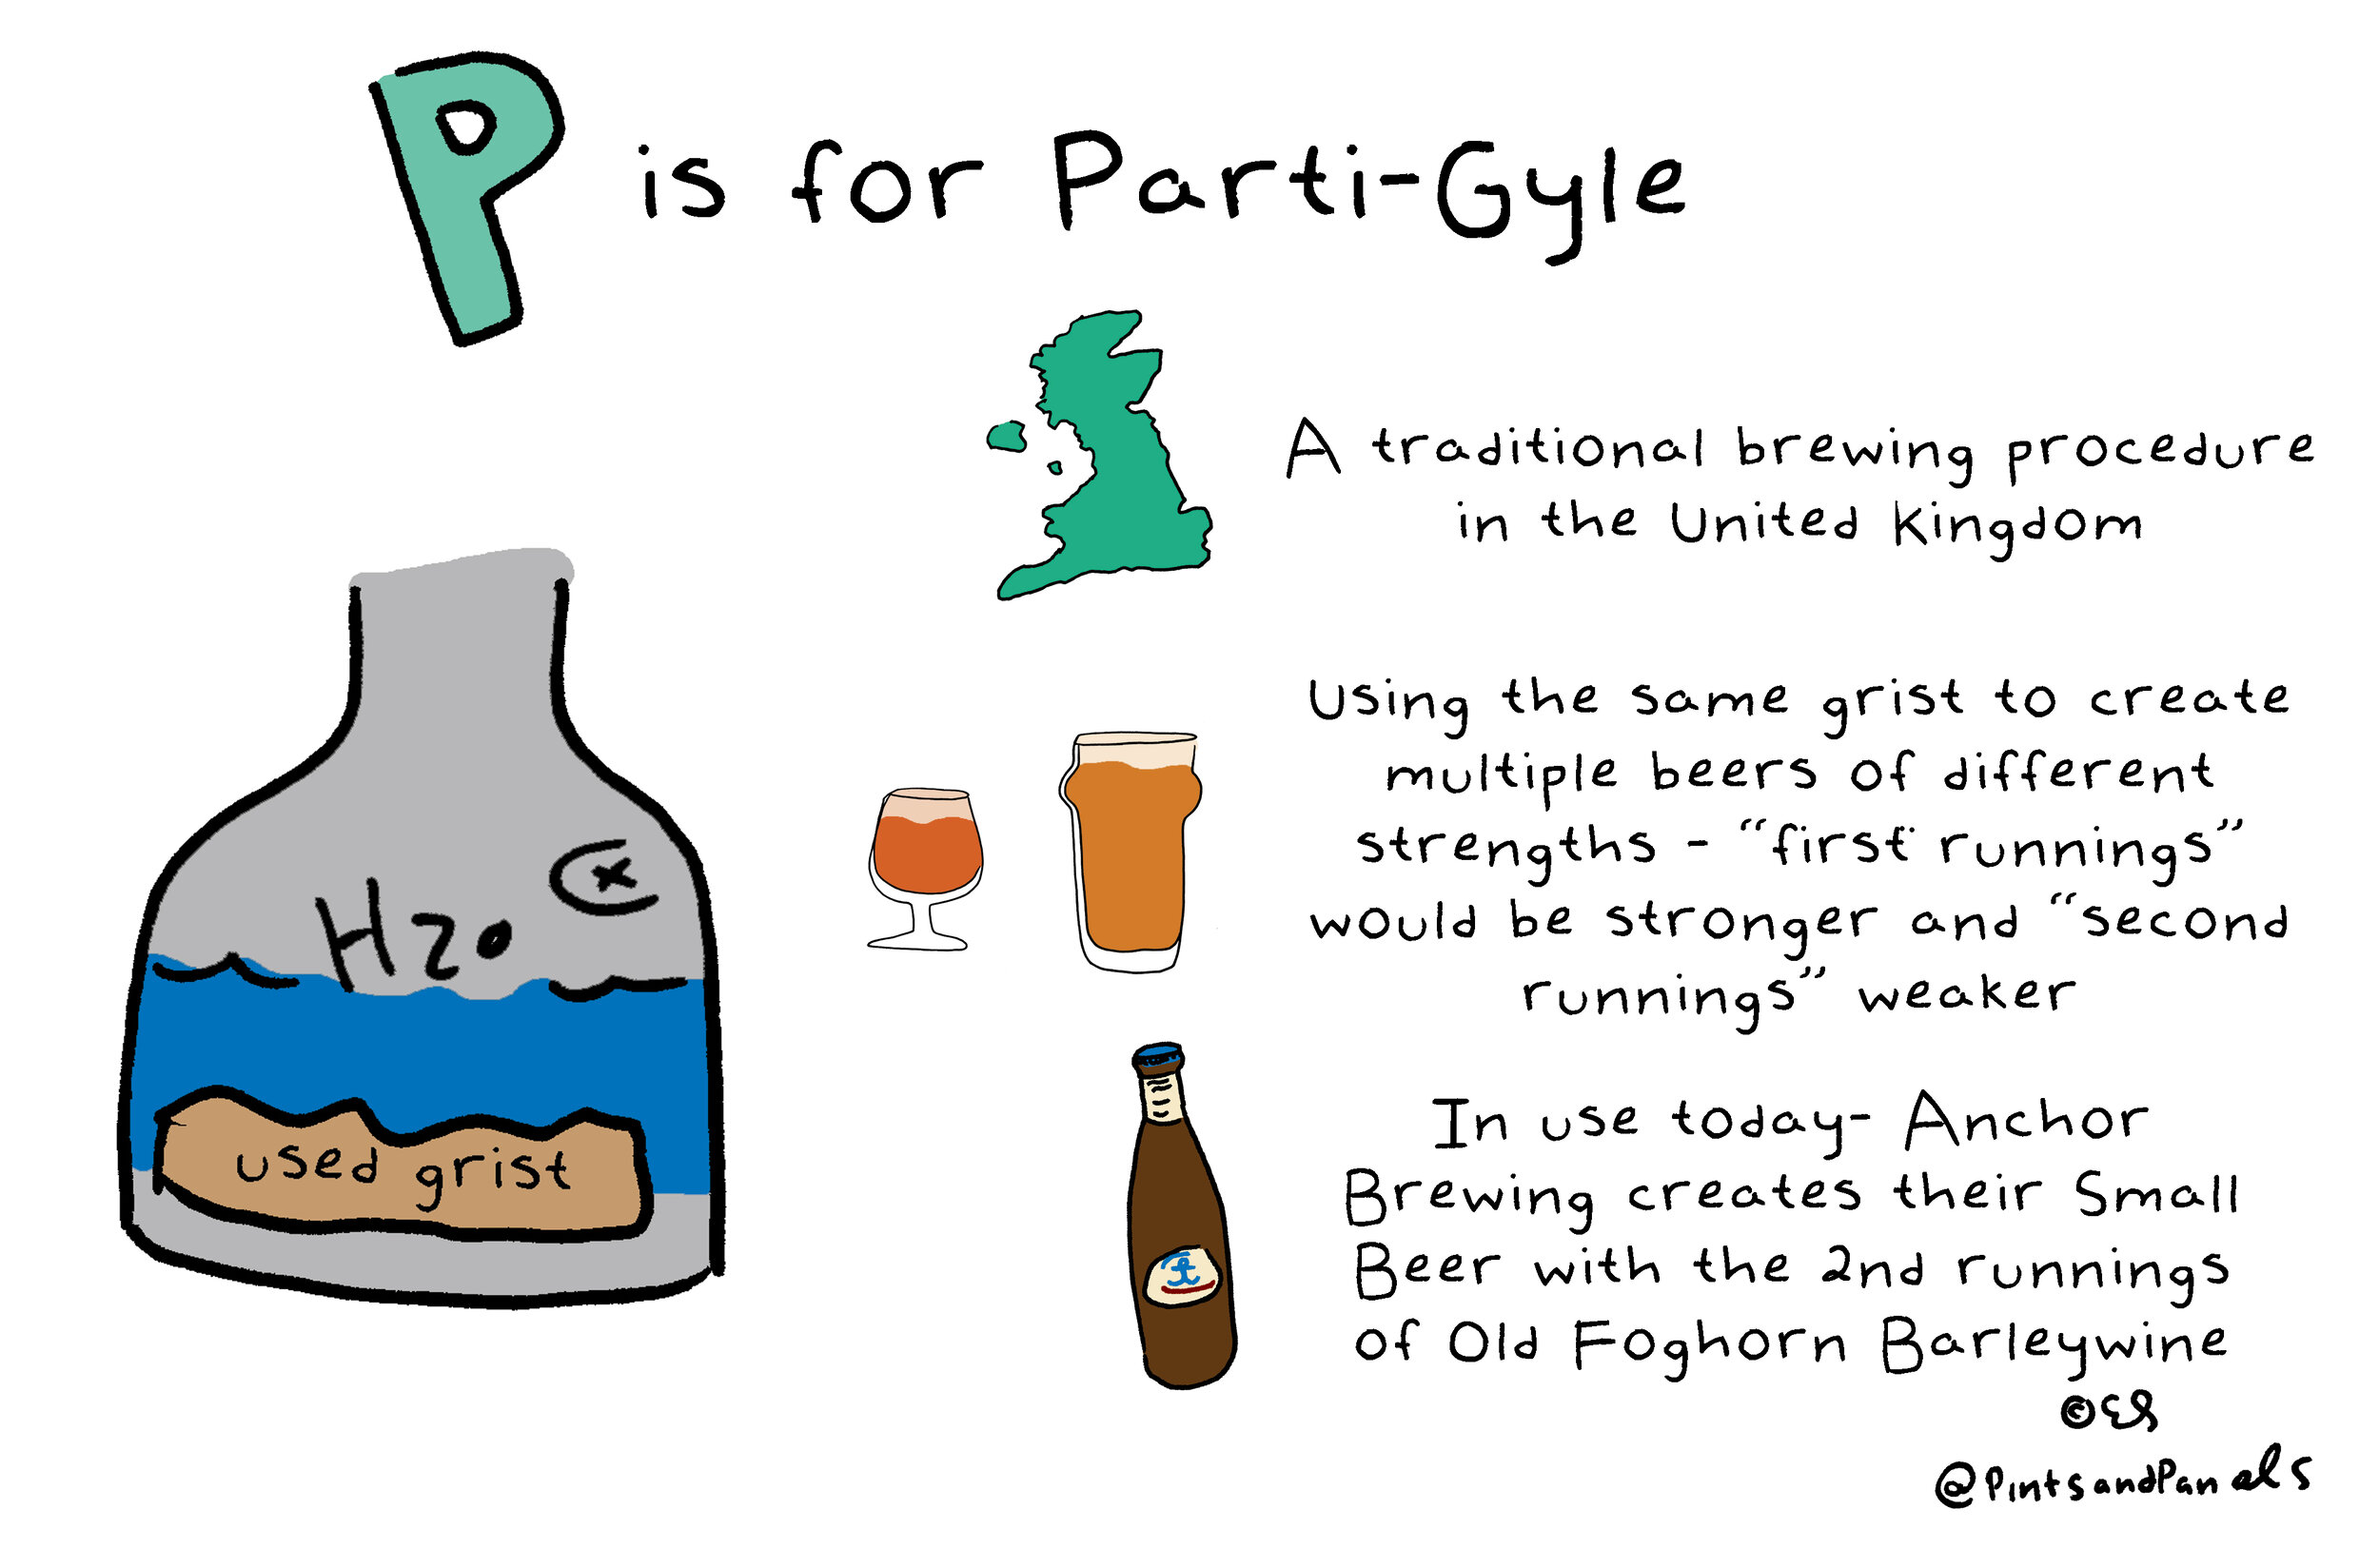 P is for Parti-Gyle
A traditional brewing procedure
in the United Kingdom
Using the same grist to create
multiple beers of different
strengths - “first runnings”
would be stronger and “second
runnings” weaker
H2O
used grist
In use today- Anchor
Brewing creates their Small
Beer with the 2nd runnings
of Old Foghorn Barleywine
©ES
@PintsandPanels